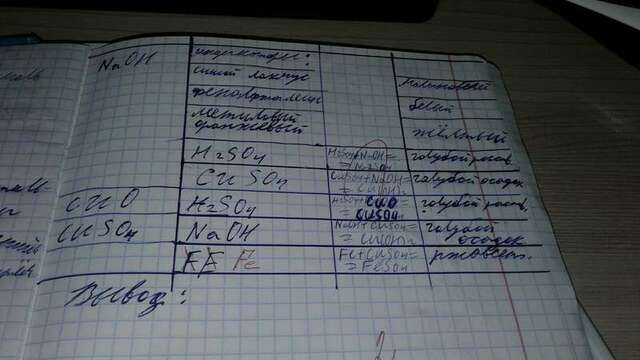 NaOH
индикаторы:
синий лакмус
фенолфталеин
метиловый
оранжевый
малиновый
белый
жёлтый
H2SO4
= Na2SO4
голубой раств.
CuSO4
CuSO4+NaOH=
= Cu(OH)2
голубой осадок
CuO
H2SO4
CuO
= CuSO4
голубой раств.
CuSO4
NaOH
NaOH+CuSO4=
= Cu(OH)2
голубой
осадок
FE Fe
Fe+CuSO4=
= FeSO4
Вывод: